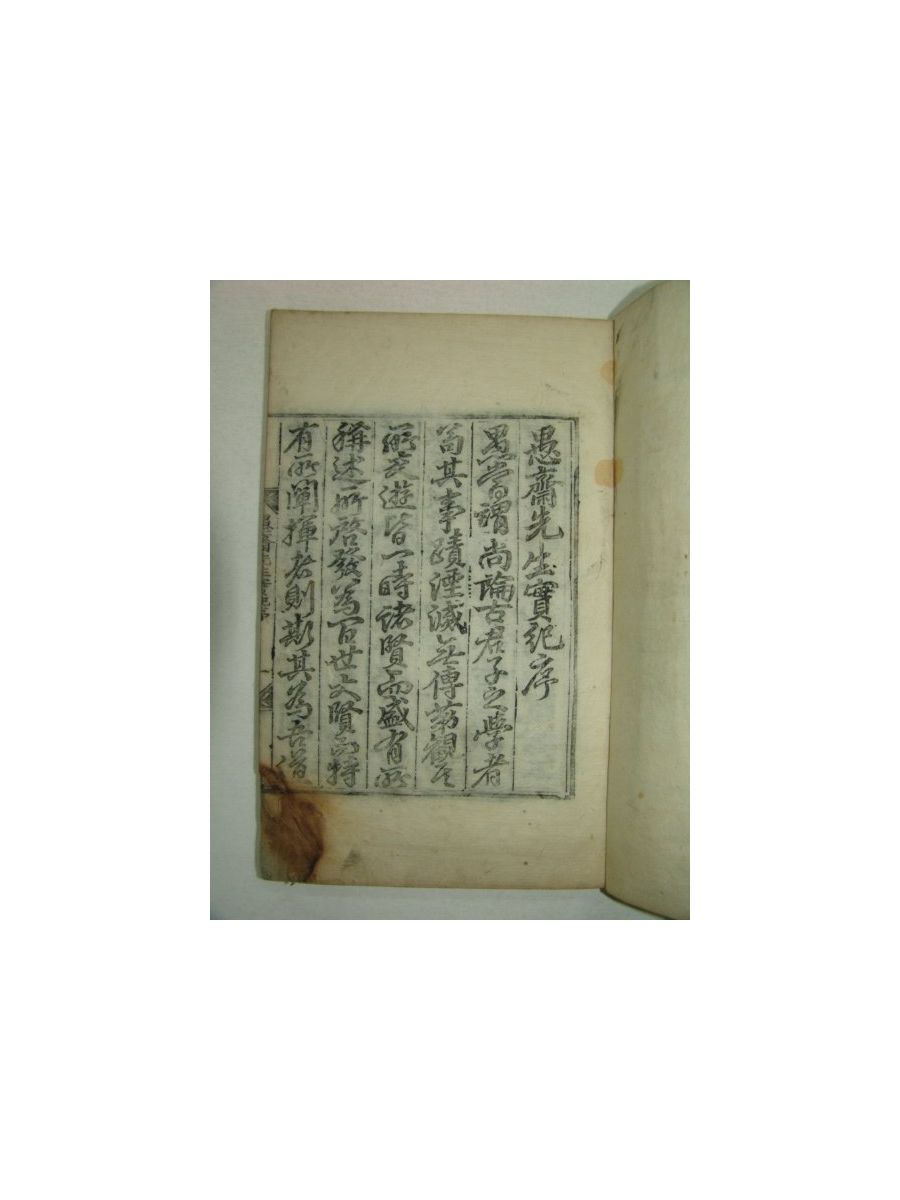 愚齋先生實紀序
愚嘗謂尚論古君子之學者
苟其事蹟湮滅無傳苐觀其
所交遊皆一時諸賢而盛有所
稱述所啓發為百世大賢而特
有所闡揮者則斯其為吾道